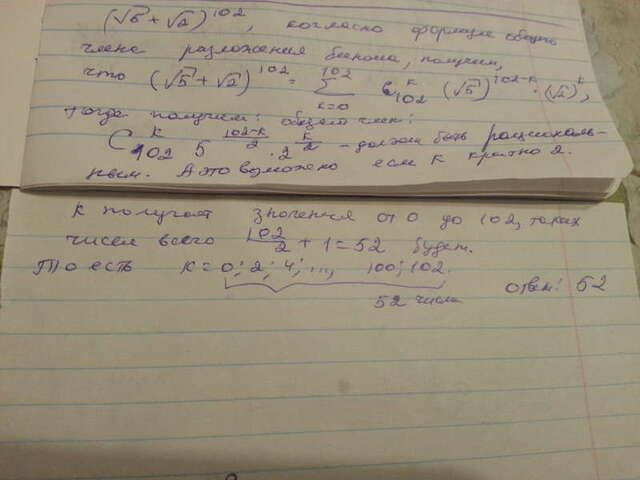 (√5 + √2)^102, согласно формуле общего
члена разложения бинома, получим,
что (√5 + √2)^102 = ∑_{k=0}^{102} C_102^k (√5)^{102-k} · (√2)^k,
тогда получим: общий член:
C_102^k 5^{(102-k)/2} · 2^{k/2} - должен быть рациональ-
ным. А это возможно если k кратно 2.
k получает значения от 0 до 102, таких
чисел всего 102/2 + 1 = 52 будет.
То есть k = 0; 2; 4; ..., 100; 102.
52 числа
ответ: 52